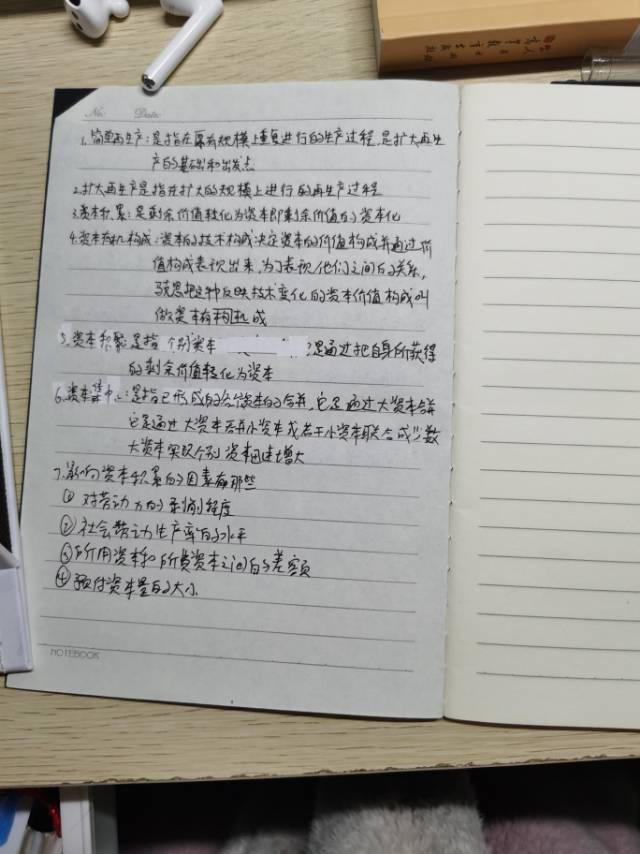 No.
Date:
1.简单再生产:是指在原有规模上重复进行的生产过程,是扩大再生
产的基础和出发点
2.扩大再生产是指在扩大的规模上进行的再生产过程
3.资本积累:是剩余价值转化为资本即剩余价值的资本化
4.资本有机构成:资本的技术构成决定资本的价值构成并通过价
值构成表现出来,为了表现他们之间的关系,
马克思把这种反映技术变化的资本价值构成叫
做资本有机构成
5.资本积聚:是指个别资本 是通过把自身所获得
的剩余价值转化为资本
6.资本集中:是指已形成的各个资本的合并,它是通过大资本合并
它是通过大资本吞并小资本或若干小资本联合成少数
大资本实现个别资本迅速增大
7.影响资本积累的因素有那些
①对劳动力的剥削程度
②社会劳动生产率的水平
③所用资本和所费资本之间的差额
④预付资本量的大小
NOTEBOOK